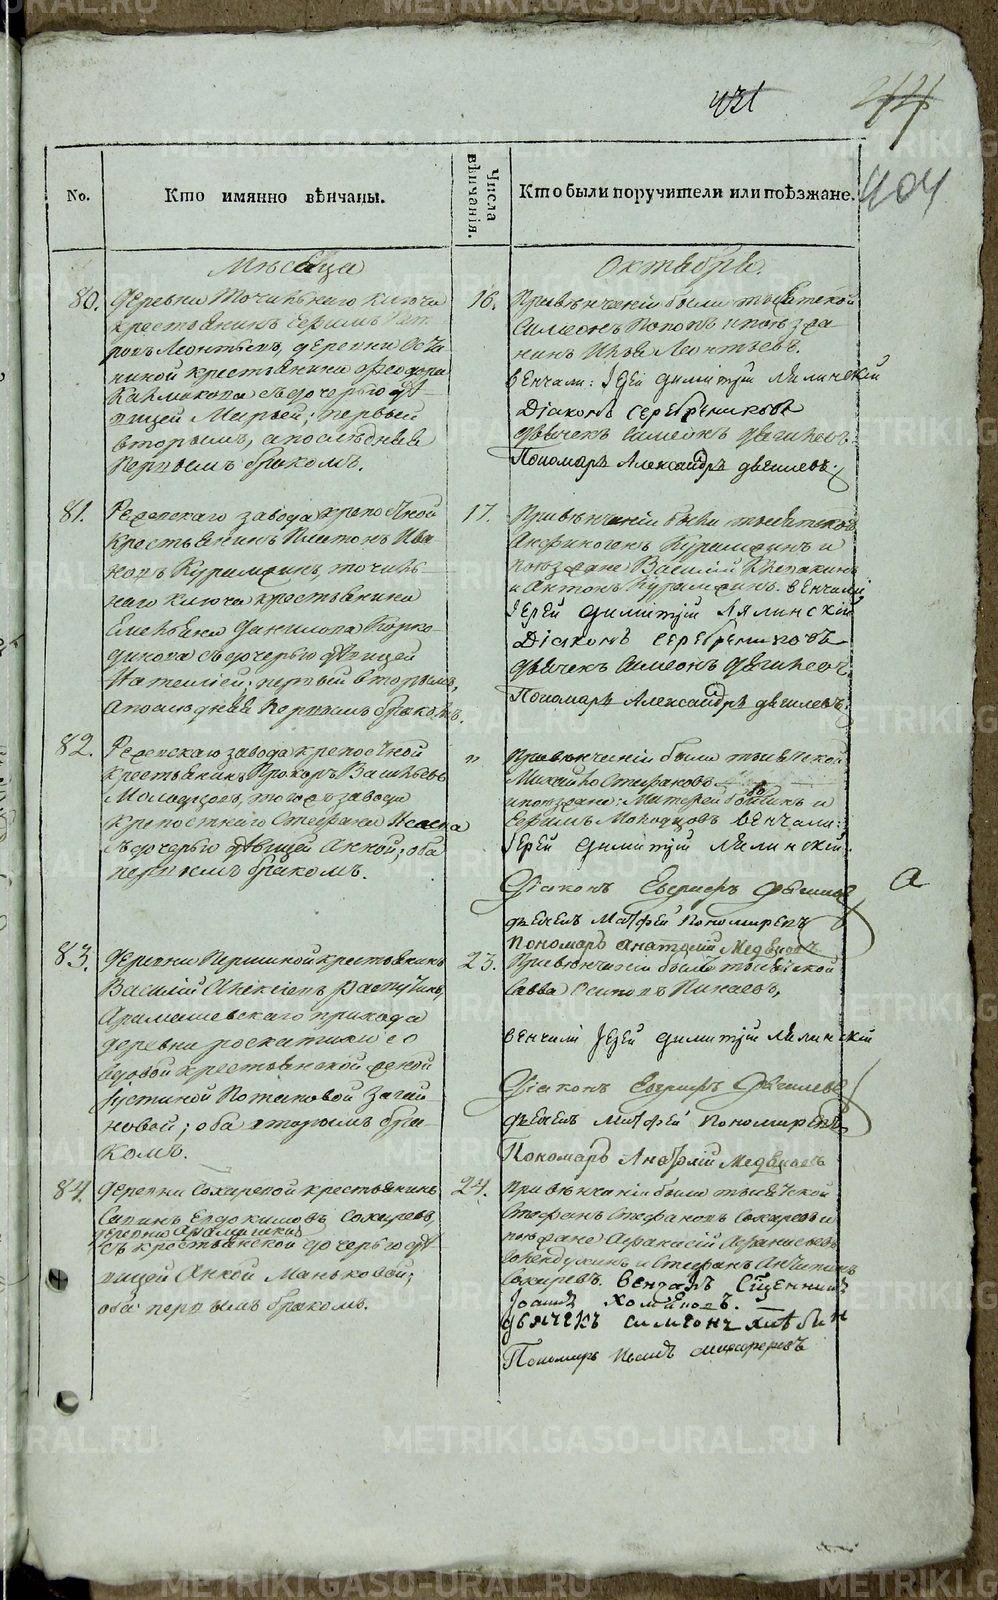 421
44
404
No.
Кто имянно вѣнчаны.
Числа вѣнчанія.
Кто были поручители или поѣзжане.
Мѣсяца
Октября.
80.
Деревни Точильнаго ключа
крестьянинъ Ефимъ Пет-
ровъ Леонтьевъ, деревни Оси-
ниной крестьянина Феодора
Калмакова съ дочерью дѣ-
вицей Марьей; первый
вторымъ, а послѣдняя
первымъ бракомъ.
16.
При вѣнчаніи были тысятской
Симеонъ Поповъ и поѣзжа-
нинъ Илья Леонтьевъ.
венчали: Іерей Димитрій Лялинскій
Діаконъ Серебрениковъ
дьячекъ Симеонъ Двгилевъ
Пономарь Александръ Двгилевъ
81.
Режевскаго завода крепосной
крестьянинъ Платонъ Ива-
новъ Курамжинъ, точиль-
наго ключа крестьянина
Емельяна Данилова Корко-
динова съ дочерью дѣвицей
Наталіей; первый вторымъ,
а послѣдняя первымъ бракомъ.
17.
При вѣнчаніи были тысятской
Анфиногенъ Курамжинъ и
поѣзжане Василій Клевакинъ
и Антонъ Курамжинъ. венчали
Іерей Димитрій Лялинскій
Діаконъ Серебрениковъ
дьячекъ Симеонъ Двгилевъ
Пономарь Александръ Двгилевъ
82.
Режевскаго завода крепосной
крестьянинъ Прохоръ Васильевъ
Молодцовъ, тогоже завода
крепостнаго Стефана Исаева
съ дочерью дѣвицей Анной; оба
первымъ бракомъ.
"
При вѣнчаніи были тысятской
Михайло Стефановъ
и поѣзжане: Матфей и
Ефимъ Молодцовъ венчали:
Іерей Димитрій Лялинскій.
Діаконъ Евграфъ
дьячекъ Матфей Пономаревъ
пономарь Анатолій Медведевъ
а
83.
Деревни Першиной крестьянинъ
Василій Алексіевъ Распутинъ,
Арамашевскаго прихода
деревни роскатихи со
вдовой крестьянской женой
Іустиной Потаповой Загай-
новой; оба вторымъ бра-
комъ.
23.
При вѣнчаніи были тысятской
Савва Осиповъ Пинаевъ,
венчали Іерей Димитрій Лялинскій
Діаконъ Евграфъ
дьячекъ Матфей Пономаревъ
Пономарь Анатолій Медведевъ
84.
Деревни Сохаревой крестьянинъ
Савинъ Евдокимовъ Сохаревъ,
деревни Арамашки
съ крестьянской дочерью дѣ-
вицей Анной Маньковой;
оба первымъ бракомъ.
24.
При вѣнчаніи были тысятской
Стефанъ Стефановъ Сохаревъ и
поѣзжане Афанасій Афанасьевъ
и Стефанъ Антипинъ
Сохаревъ. венчалъ Священникъ
Іоаннъ Хомяковъ.
дьячекъ Симеонъ Хлѣбин
Пономарь